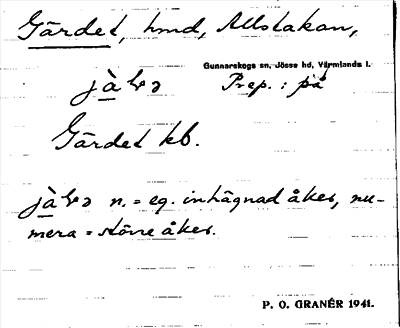 Gärdet, hmd, Allstakan,
Gunnarskogs sn, Jösse hd, Värmlands l.
Prep.: på
Gärdet kb.
n. = eg. inhägnad åker, nu-
mera = större åker.
P. O. GRANÉR 1941.